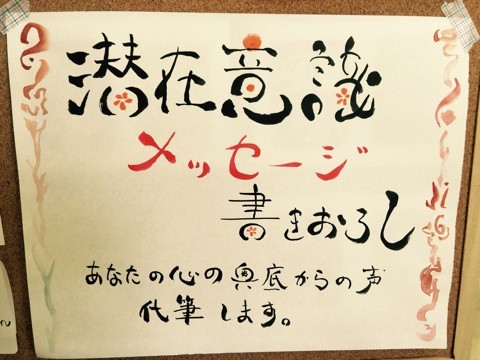 潜在意識
メッセージ
書きおろし
あなたの心の奥底からの声
代筆します。